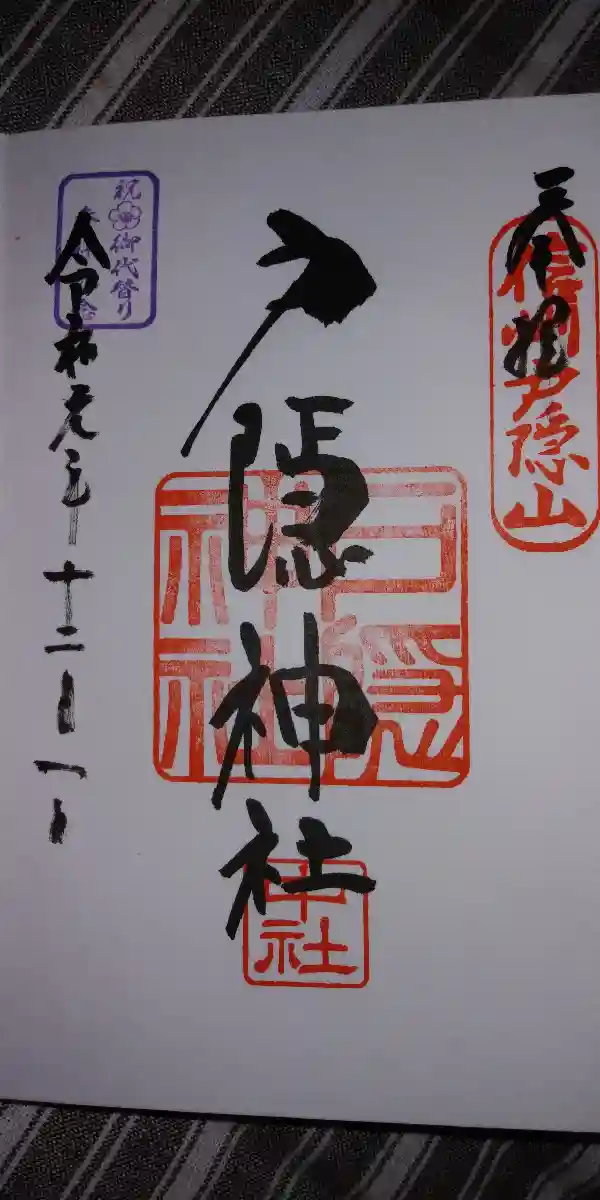 奉拝
信州戸隠山
戸隠神社
戸隠
神社
中社
祝 御代替り
令和元年十二月一日